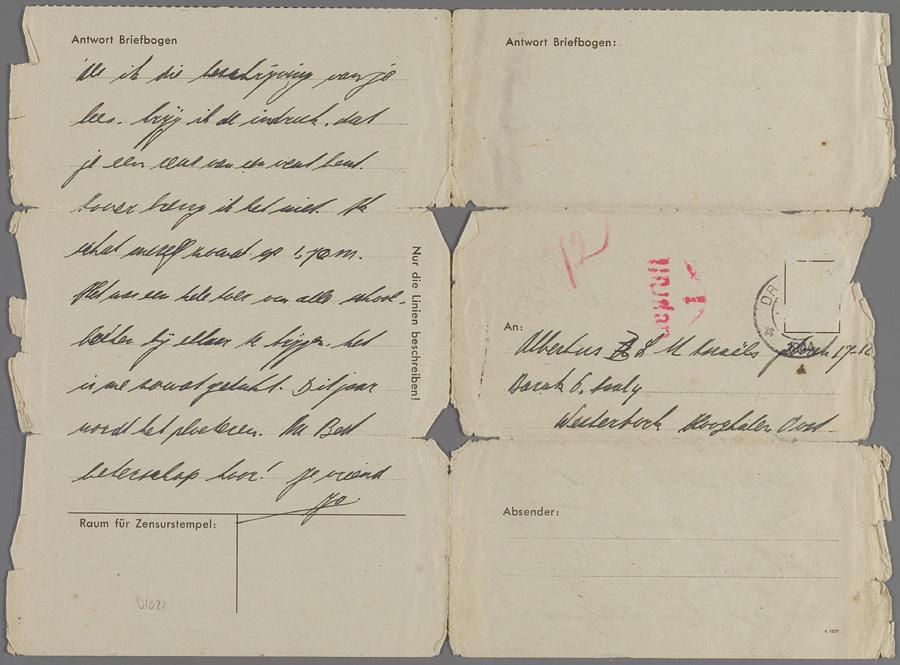 Antwort Briefbogen
Als ik die beschrijving van je
lees. krijg ik de indruk. dat
je een reus van een vent bent.
Zover breng ik het niet. Ik
schat mezelf zowat op 1,70 m.
Het was een hele toer om alle school-
boeken bij elkaar te krijgen. het
is me zowat gelukt. Dit jaar
wordt het ploeteren. Nu Bert
beterschap hoor! Je vriend
Jo
Raum für Zensurstempel:
01021
Nur die Linien beschreiben!
Antwort Briefbogen:
12
Geprüft
1
DR
1944
An:
Albertus L M Israëls 17-12
Barak 6.
Westerbork Hooghalen Oost.
Absender:
K 1327